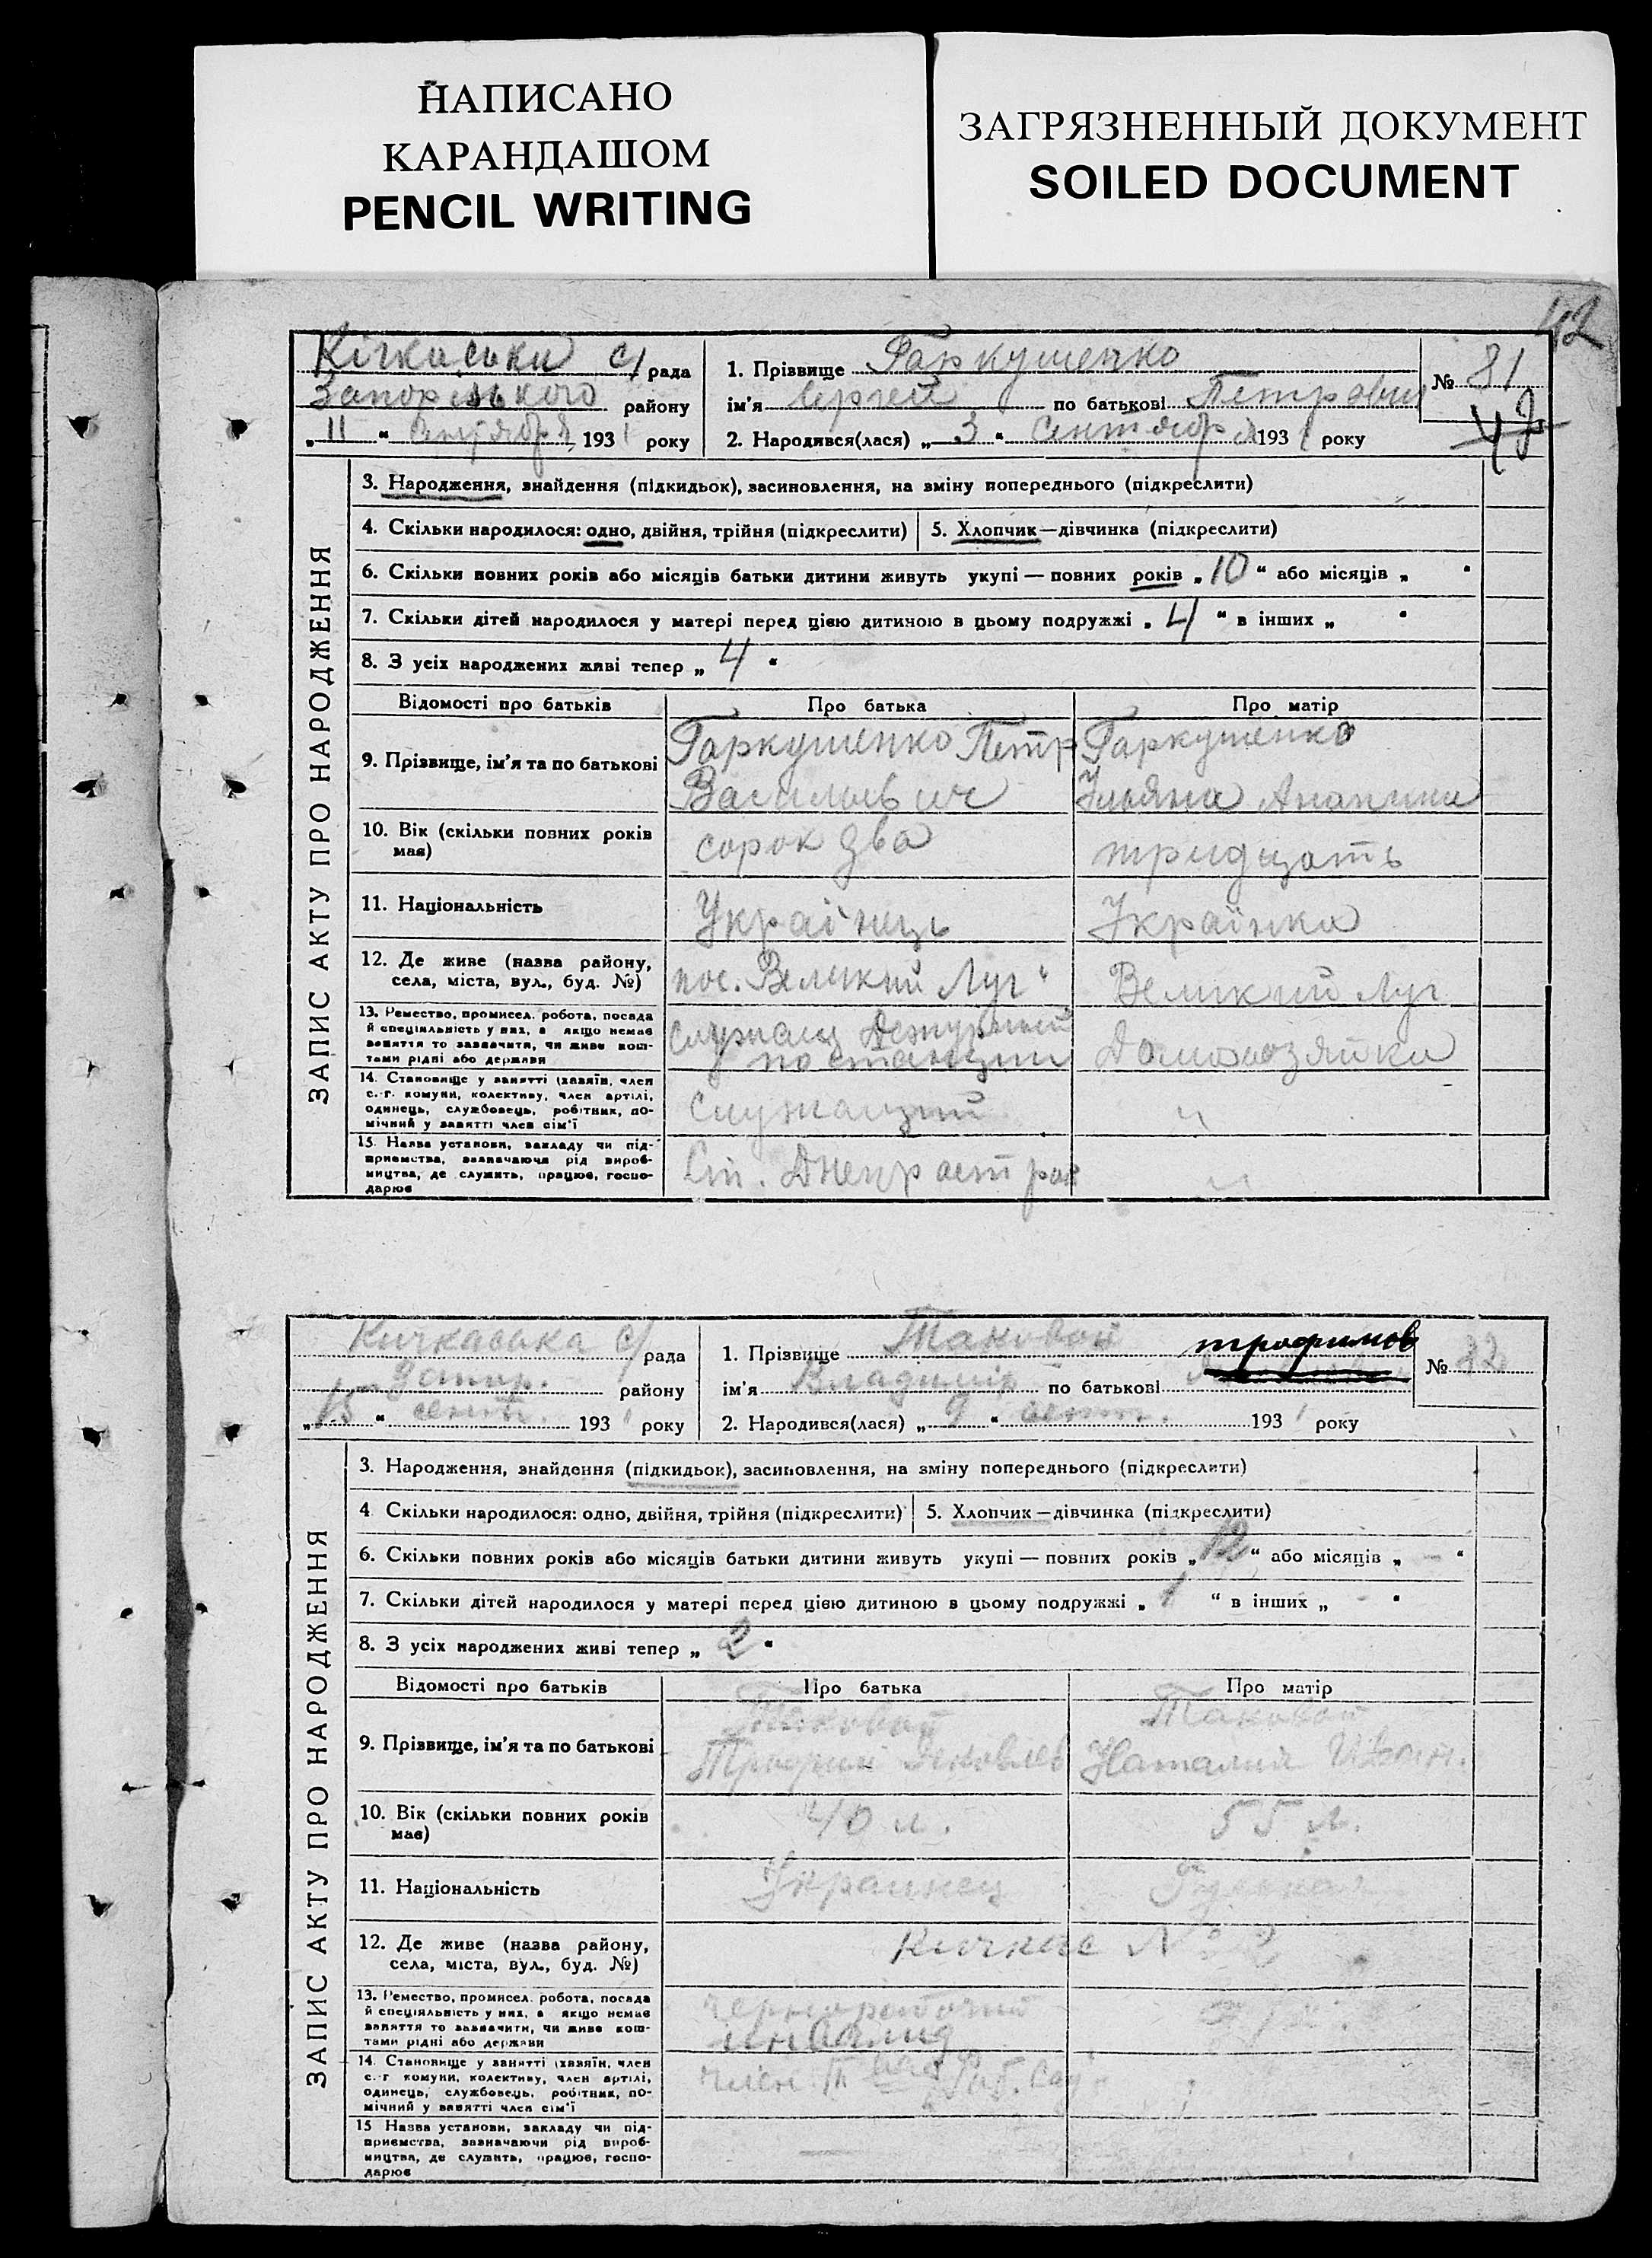 НАПИСАНО
КАРАНДАШОМ
PENCIL WRITING
ЗАГРЯЗНЕННЫЙ ДОКУМЕНТ
SOILED DOCUMENT
42
Кічкаськи с/ рада
Запорізького району
„ 11 “ Сентября 1931 року
1. Прізвище Гаркушенко
ім’я Сергей по батькові Петрович
2. Народився(лася) „ 3 “ Сентября 1931 року
№ 81
47
ЗАПИС АКТУ ПРО НАРОДЖЕННЯ
3. Народження, знайдення (підкидьок), засиновлення, на зміну попереднього (підкреслити)
4. Скільки народилося: одно, двійня, трійня (підкреслити) 5. Хлопчик—дівчинка (підкреслити)
6. Скільки повних років або місяців батьки дитини живуть укупі — повних років „ 10 “ або місяців „ “
7. Скільки дітей народилося у матері перед цією дитиною в цьому подружжі „ 4 “ в інших „ “
8. З усіх народжених живі тепер „ 4 “
Відомості про батьків Про батька Про матір
9. Прізвище, ім’я та по батькові
Гаркушенко Петр
Васильевич
Гаркушенко
Ульяна Ананьина
10. Вік (скільки повних років
має)
сорок два
тридцать
11. Національність
Украінець
Українка
12. Де живе (назва району,
села, міста, вул., буд. №)
пос. Великий Луг“
Великий Луг
13. Ремество, промисел, робота, посада
й спеціяльність у них, а якщо немає
заняття то зазначити, чи живе кош-
тами рідні або держави
Служащ Дежурный
по станции
Домохозяйка
14. Становище у занятті (хазяїн, член
с.-г. комуни, колективу, член артілі,
одинець, службовець, робітник, по-
мічний у занятті член сім’ї
Служащий
"
15. Назва установи, закладу чи під-
приємства, зазначаючи рід вироб-
ництва, де служить, працює, госпо-
дарює
Ст. Днепрострой
"
Кичкаська с/ рада
Запор. району
„ 15 “ сент. 1931 року
1. Прізвище Таковой
трофимов
ім’я Владимір по батькові
2. Народився(лася) „ 9 “ сент. 1931 року
№ 82
ЗАПИС АКТУ ПРО НАРОДЖЕННЯ
3. Народження, знайдення (підкидьок), засиновлення, на зміну попереднього (підкреслити)
4 Скільки народилося: одно, двійня, трійня (підкреслити) 5. Хлопчик—дівчинка (підкреслити)
6. Скільки повних років або місяців батьки дитини живуть укупі — повних років „ 12 “ або місяців „ — “
7. Скільки дітей народилося у матері перед цією дитиною в цьому подружжі „ 1 “ в інших „ - “
8. З усіх народжених живі тепер „ 2 “
Відомості про батьків Про батька Про матір
9. Прізвище, ім’я та по батькові
Таковой
Трофим Яковлев
Таковой
Наталия Иван.
10. Вік (скільки повних років
має)
40 л.
55 л.
11. Національність
Украинец
Русская
12. Де живе (назва району,
села, міста, вул., буд. №)
Кичкас № 2
13. Ремество, промисел, робота, посада
й спеціяльність у них, а якщо немає
заняття то зазначити, чи живе кош-
тами рідні або держави
чернорабочий
инвалид
14. Становище у занятті (хазяїн, член
с.-г комуни, колективу, член артілі,
одинець, службовець, робітник, по-
мічний у занятті член сім’ї
член
15 Назва установи, закладу чи під-
приємства, зазначаючи рід вироб-
ництва, де служить, працює, госпо-
дарює